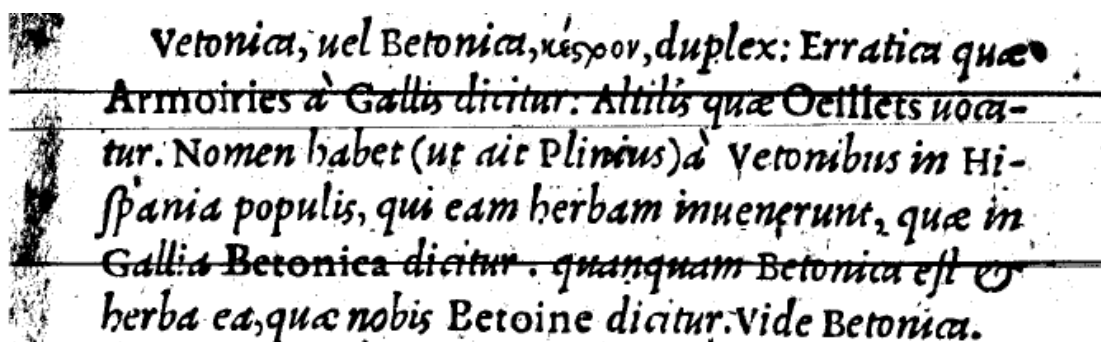 Vetonica, uel Betonica, κέςρον, duplex: Erratica quæ
Armoiries à Gallis dicitur: Altilis quæ Oeillets uoca-
tur. Nomen habet (ut ait Plinius) à Vetonibus in Hi-
ſpania populis, qui eam herbam inuenerunt, quæ in
Gallia Betonica dicitur. quanquam Betonica eſt &
herba ea, quæ nobis Betoine dicitur. Vide Betonica.